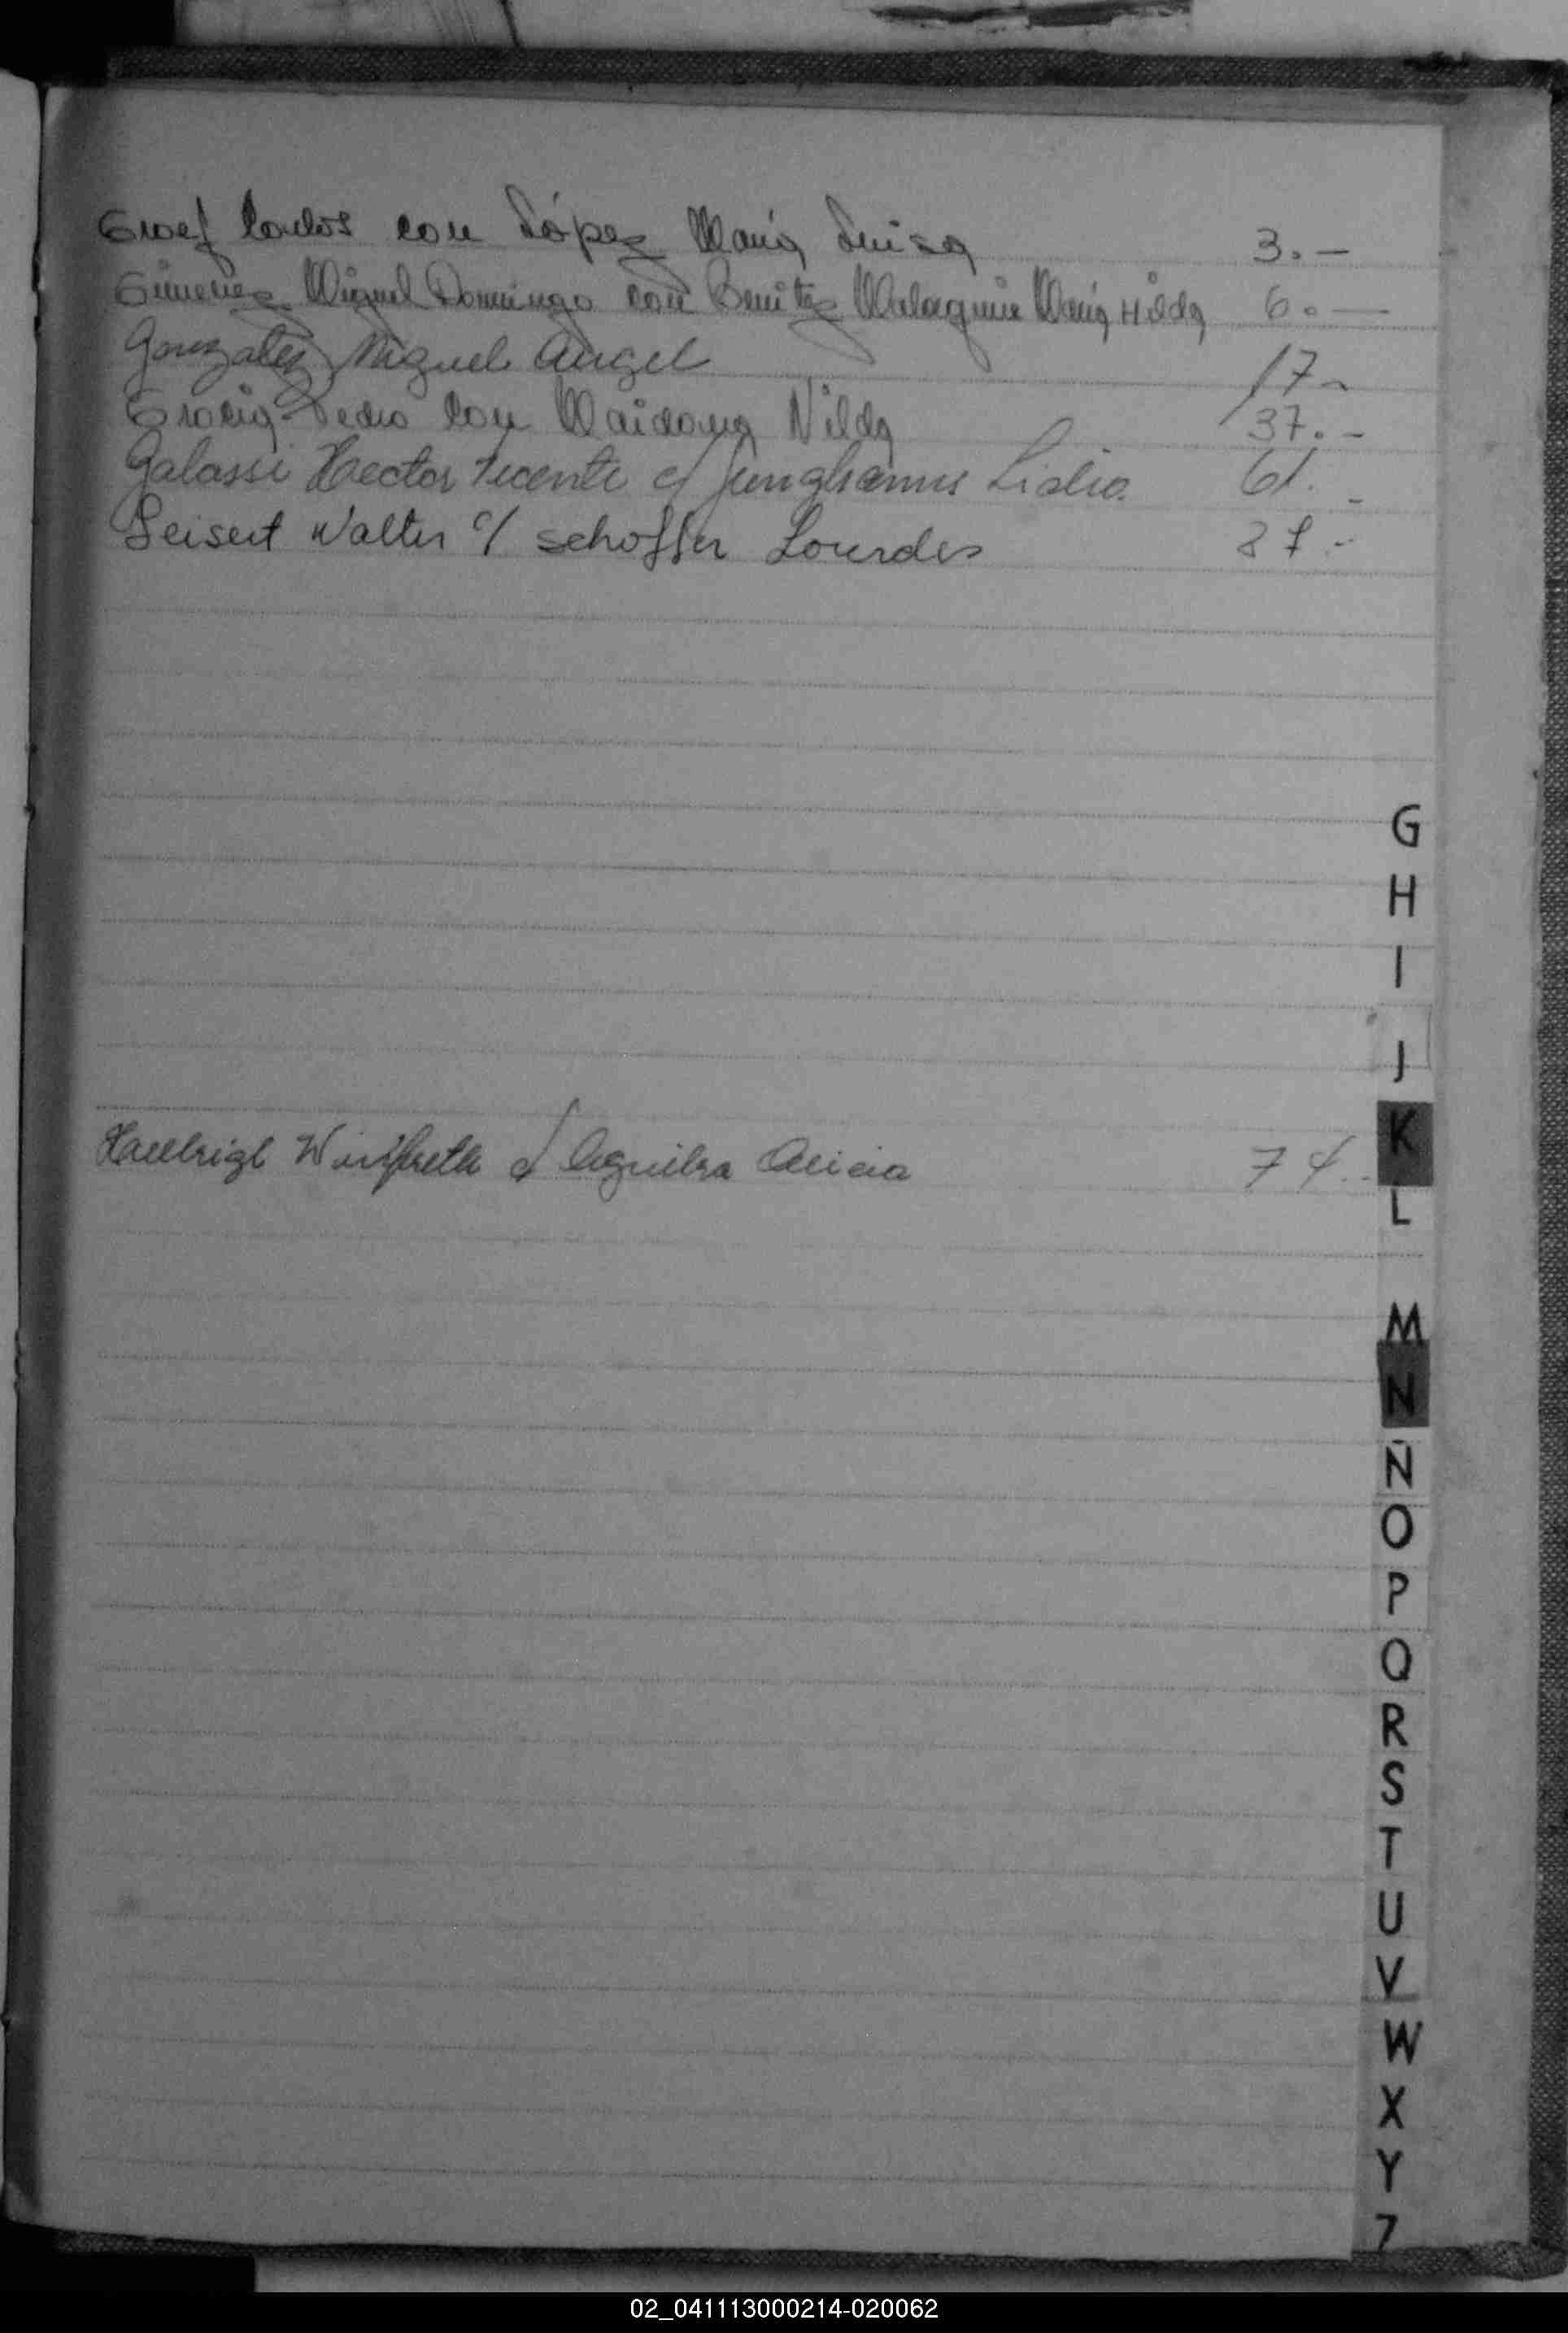 Graef Carlos con López María Luisa 3.-
Gimenez Miguel Domingo con Benitez María Hilda 6.-
Gonzalez Miguel Angel 17-
Pedro con Maidana Nilda 37.-
Galassi Hector Vicente c/ Junghanns Lidia. 61.-
Seisert Walter c/ schoffer Lourdes
G
H
I
J
K
c/ Aguilera Alicia
L
M
N
Ñ
O
P
Q
R
S
T
U
V
W
X
Y
Z
02_041113000214-020062